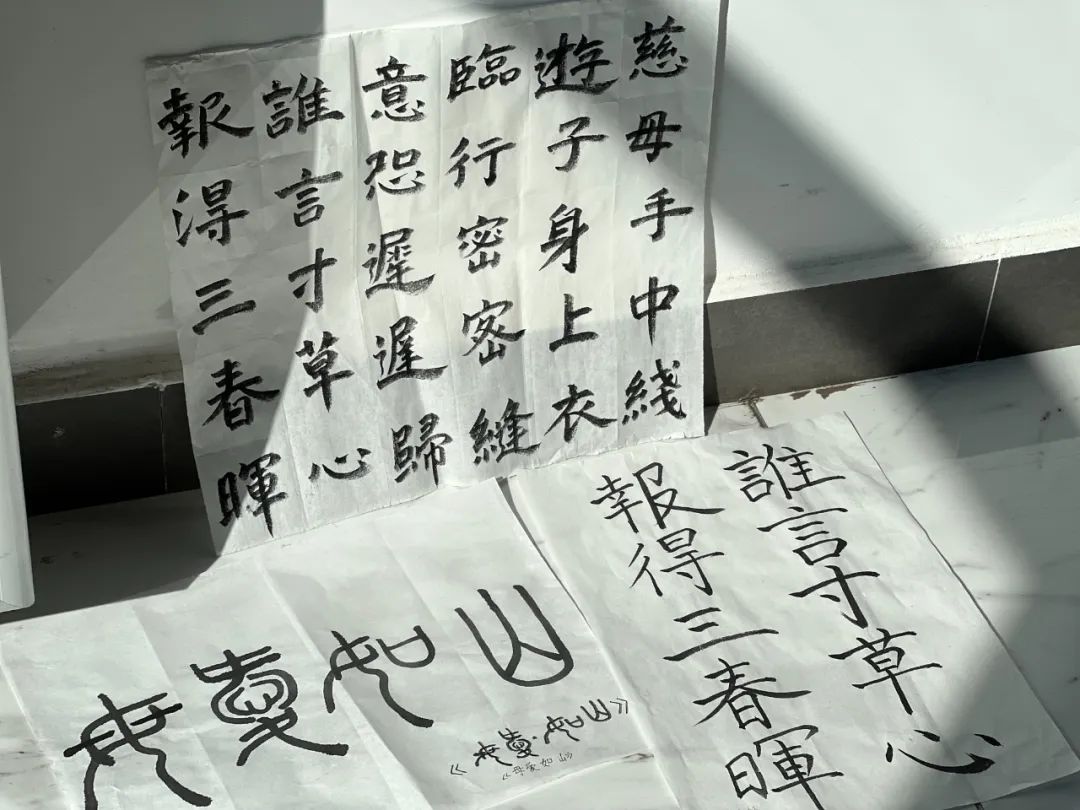 慈母手中綫
遊子身上衣
臨行密密縫
意恐遲遲歸
誰言寸草心
報得三春暉
誰言寸草心
報得三春暉
母愛如山
《母愛如山》
《母愛如山》